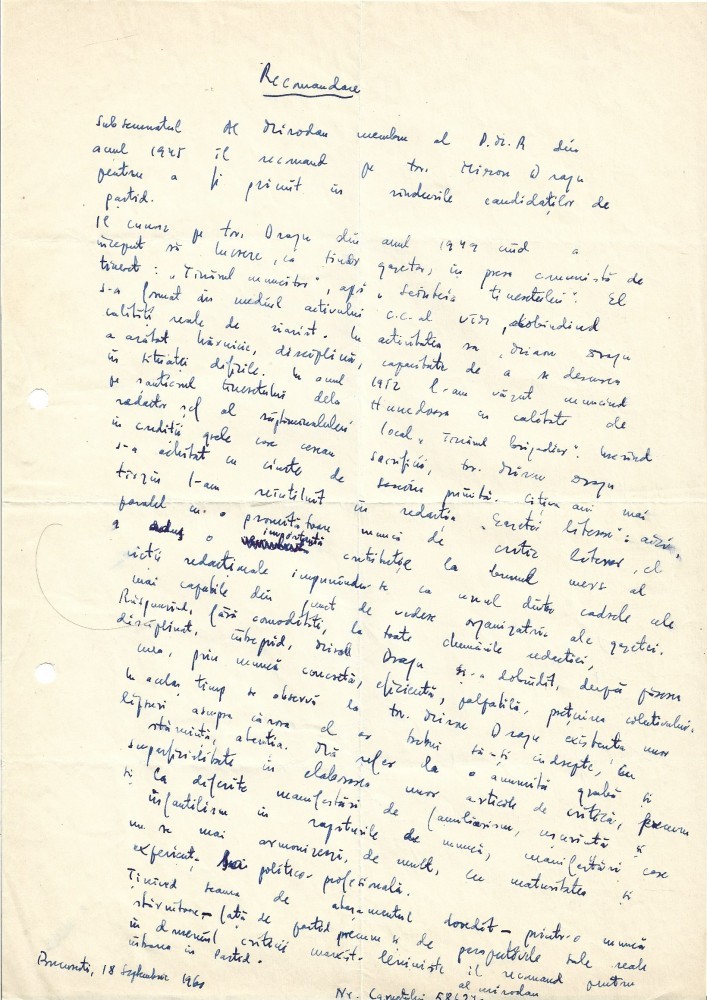 Recomandare
Subsemnatul Al Mirodan membru al P.M.R din
anul 1945 îl recomand pe tov. Mircon Dragu
pentru a fi primit în rîndurile candidaților de
partid.
Îl cunosc pe tov. Dragu din anul 1949 cînd a
început să lucreze, ca tînăr gazetar, în presa comunistă de
tineret: "Tînărul muncitor", apoi "Scînteia tineretului". El
s-a format în mediul activului C.C. al UTM, dobîndind
calități reale de ziarist. În activitatea sa, Dragu
a arătat hărnicie, disciplină, capacitate de a se descurca
în situații dificile. În anul 1952 l-am văzut muncind
pe șantierul tineretului dela Hunedoara în calitate de
redactor șef al săptămînalului local "Tînărul brigadier". Lucrînd
în condiții grele care cereau sacrificii, tov. Dragu
s-a achitat cu cinste de sarcina primită. Cîțiva ani mai
tîrziu l-am reîntîlnit în redacția "Gazetei literare": aici,
paralel cu o promițătoare muncă de critic literar, el
a adus o importantă contribuție la bunul mers al
muncii redacționale impunîndu-se ca unul dintre cadrele cele
mai capabile din punct de vedere organizatoric ale gazetei.
Răspunzînd, fără comoditate, la toate chemările redacției,
disciplinat, întrepid, Dragu și-a dobîndit, după părerea
mea, prin muncă concretă, eficientă, palpabilă, prețuirea colectivului.
În același timp se observă la tov. Dragu existența unor
lipsuri asupra cărora el ar trebui să-și îndrepte, cu
stăruință, atenția. Mă refer la o anumită grabă și
superficialitate în elaborarea unor articole de critică, precum
și la diferite manifestări de familiarism, ușurință și
infantilism în raporturile de muncă, manifestări care
nu se mai armonizează, de mult, cu maturitatea și
experiența sa politico-profesională.
Ținînd seama de atașamentul dovedit - printr-o muncă
stăruitoare - față de partid precum și de perspectivele sale reale
în domeniul criticii marxist-leniniste îl recomand pentru
intrarea în partid.
București, 18 Septembrie 1960
al mirodan
Nr. Carnetului